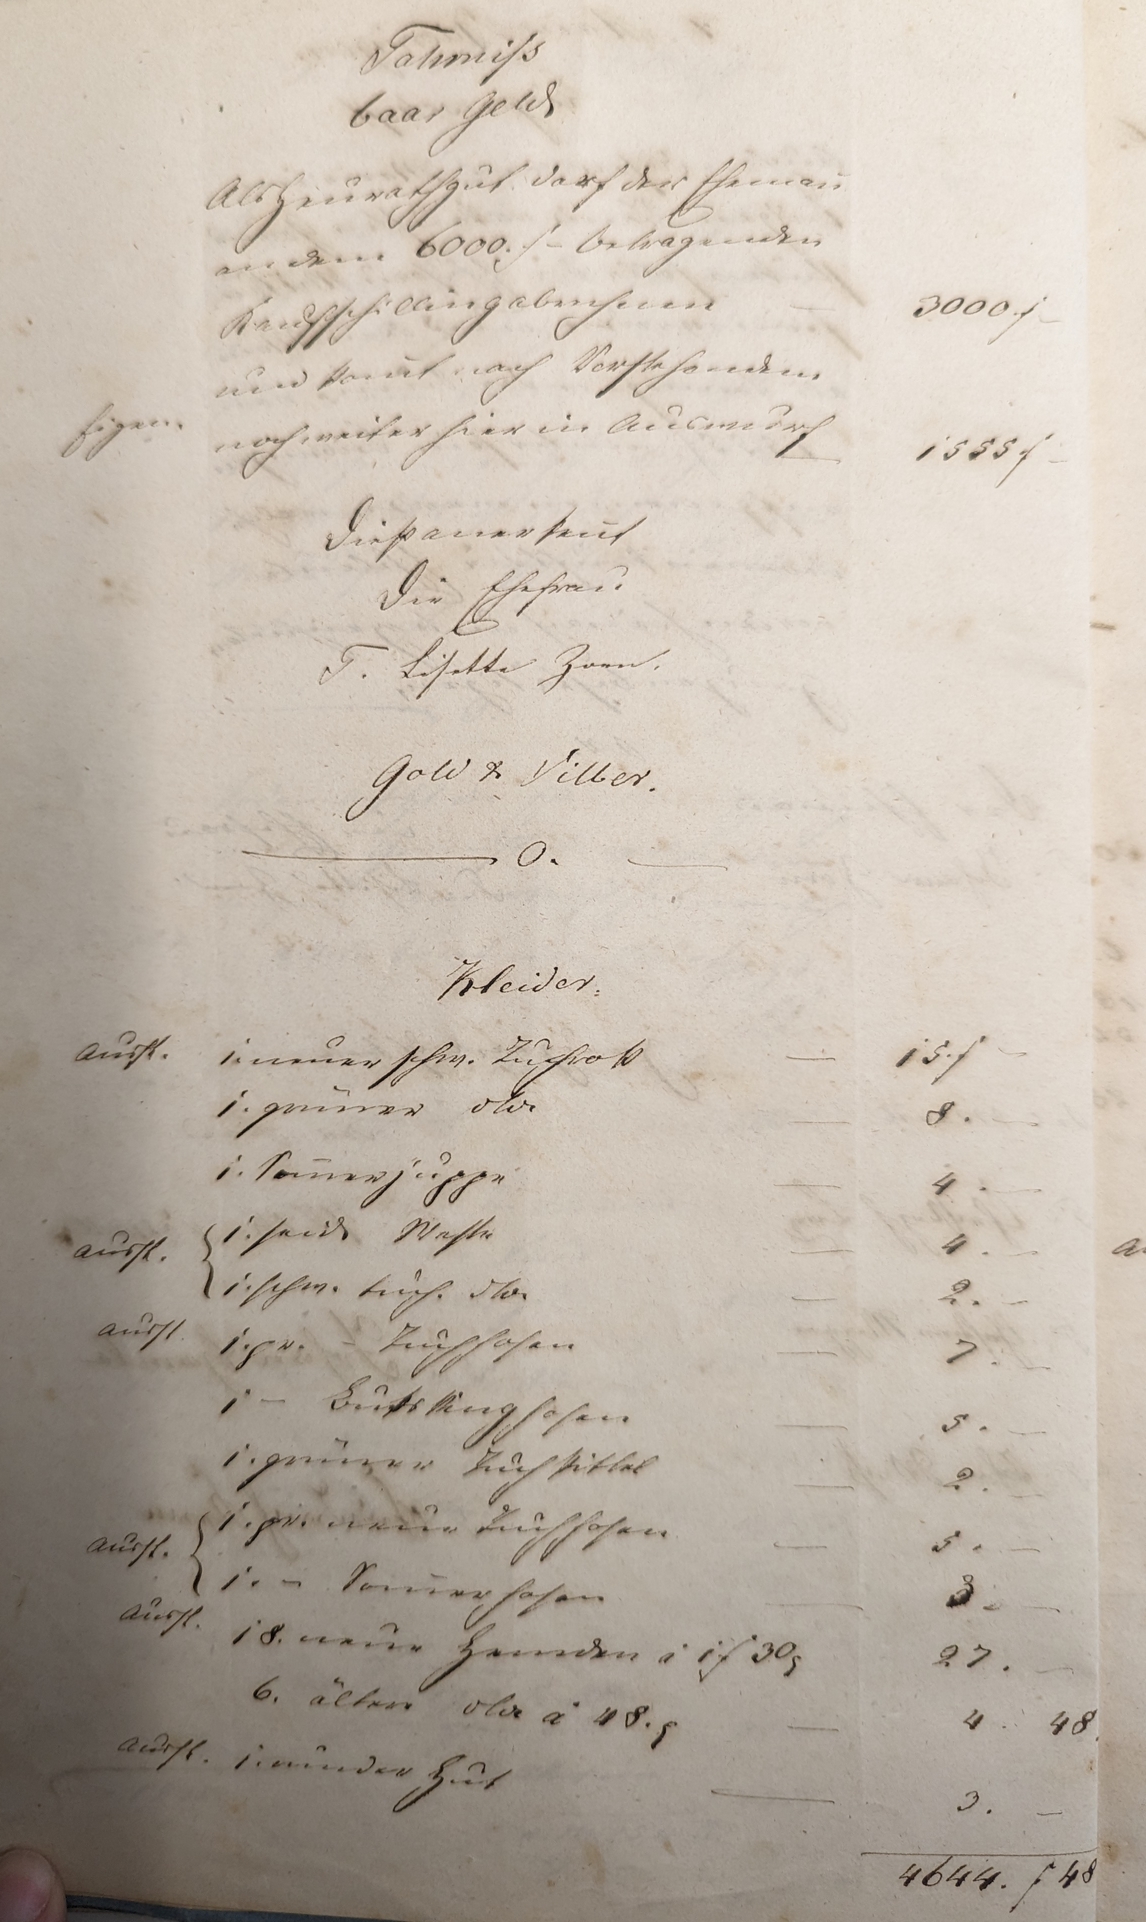 Fahrniß
baar Geld
Als Heurathgut darf der Ehemañ
an dem 6000. f – betragenden
Kaufschilling abrechnen – 3000 f –
und komt nach Vorstehendem
Eigen. noch weiter hier in Auswurf 1555 f –
Dieß anerkeñt
Die Ehefrau
T. Lisette Zorn.
Gold & Silber.
— 0. —
Kleider.
Ausst. 1. neuer schw. Tuchrok — 15. f –
1. grüner dto — 8. –
1. Som̄erjuppe — 4. –
Ausst. { 1. seid. Weste — 4. –
1. schw. tuch. dto. — 2. –
Ausst. 1. pr. – Tuchhosen — 7. –
1 – Buksking hosen — 5. –
1. grüner Tuchkittel — 2. –
Ausst. { 1. pr. neue Tuchhosen — 5. –
1. – Som̄erhosen — 3. –
Ausst. 18. neue Hemden à 1 f 30 27. –
6. ältere dto à 48. — 4. 48.
Ausst. 1. runder Hut — 3. –
4644. f 48